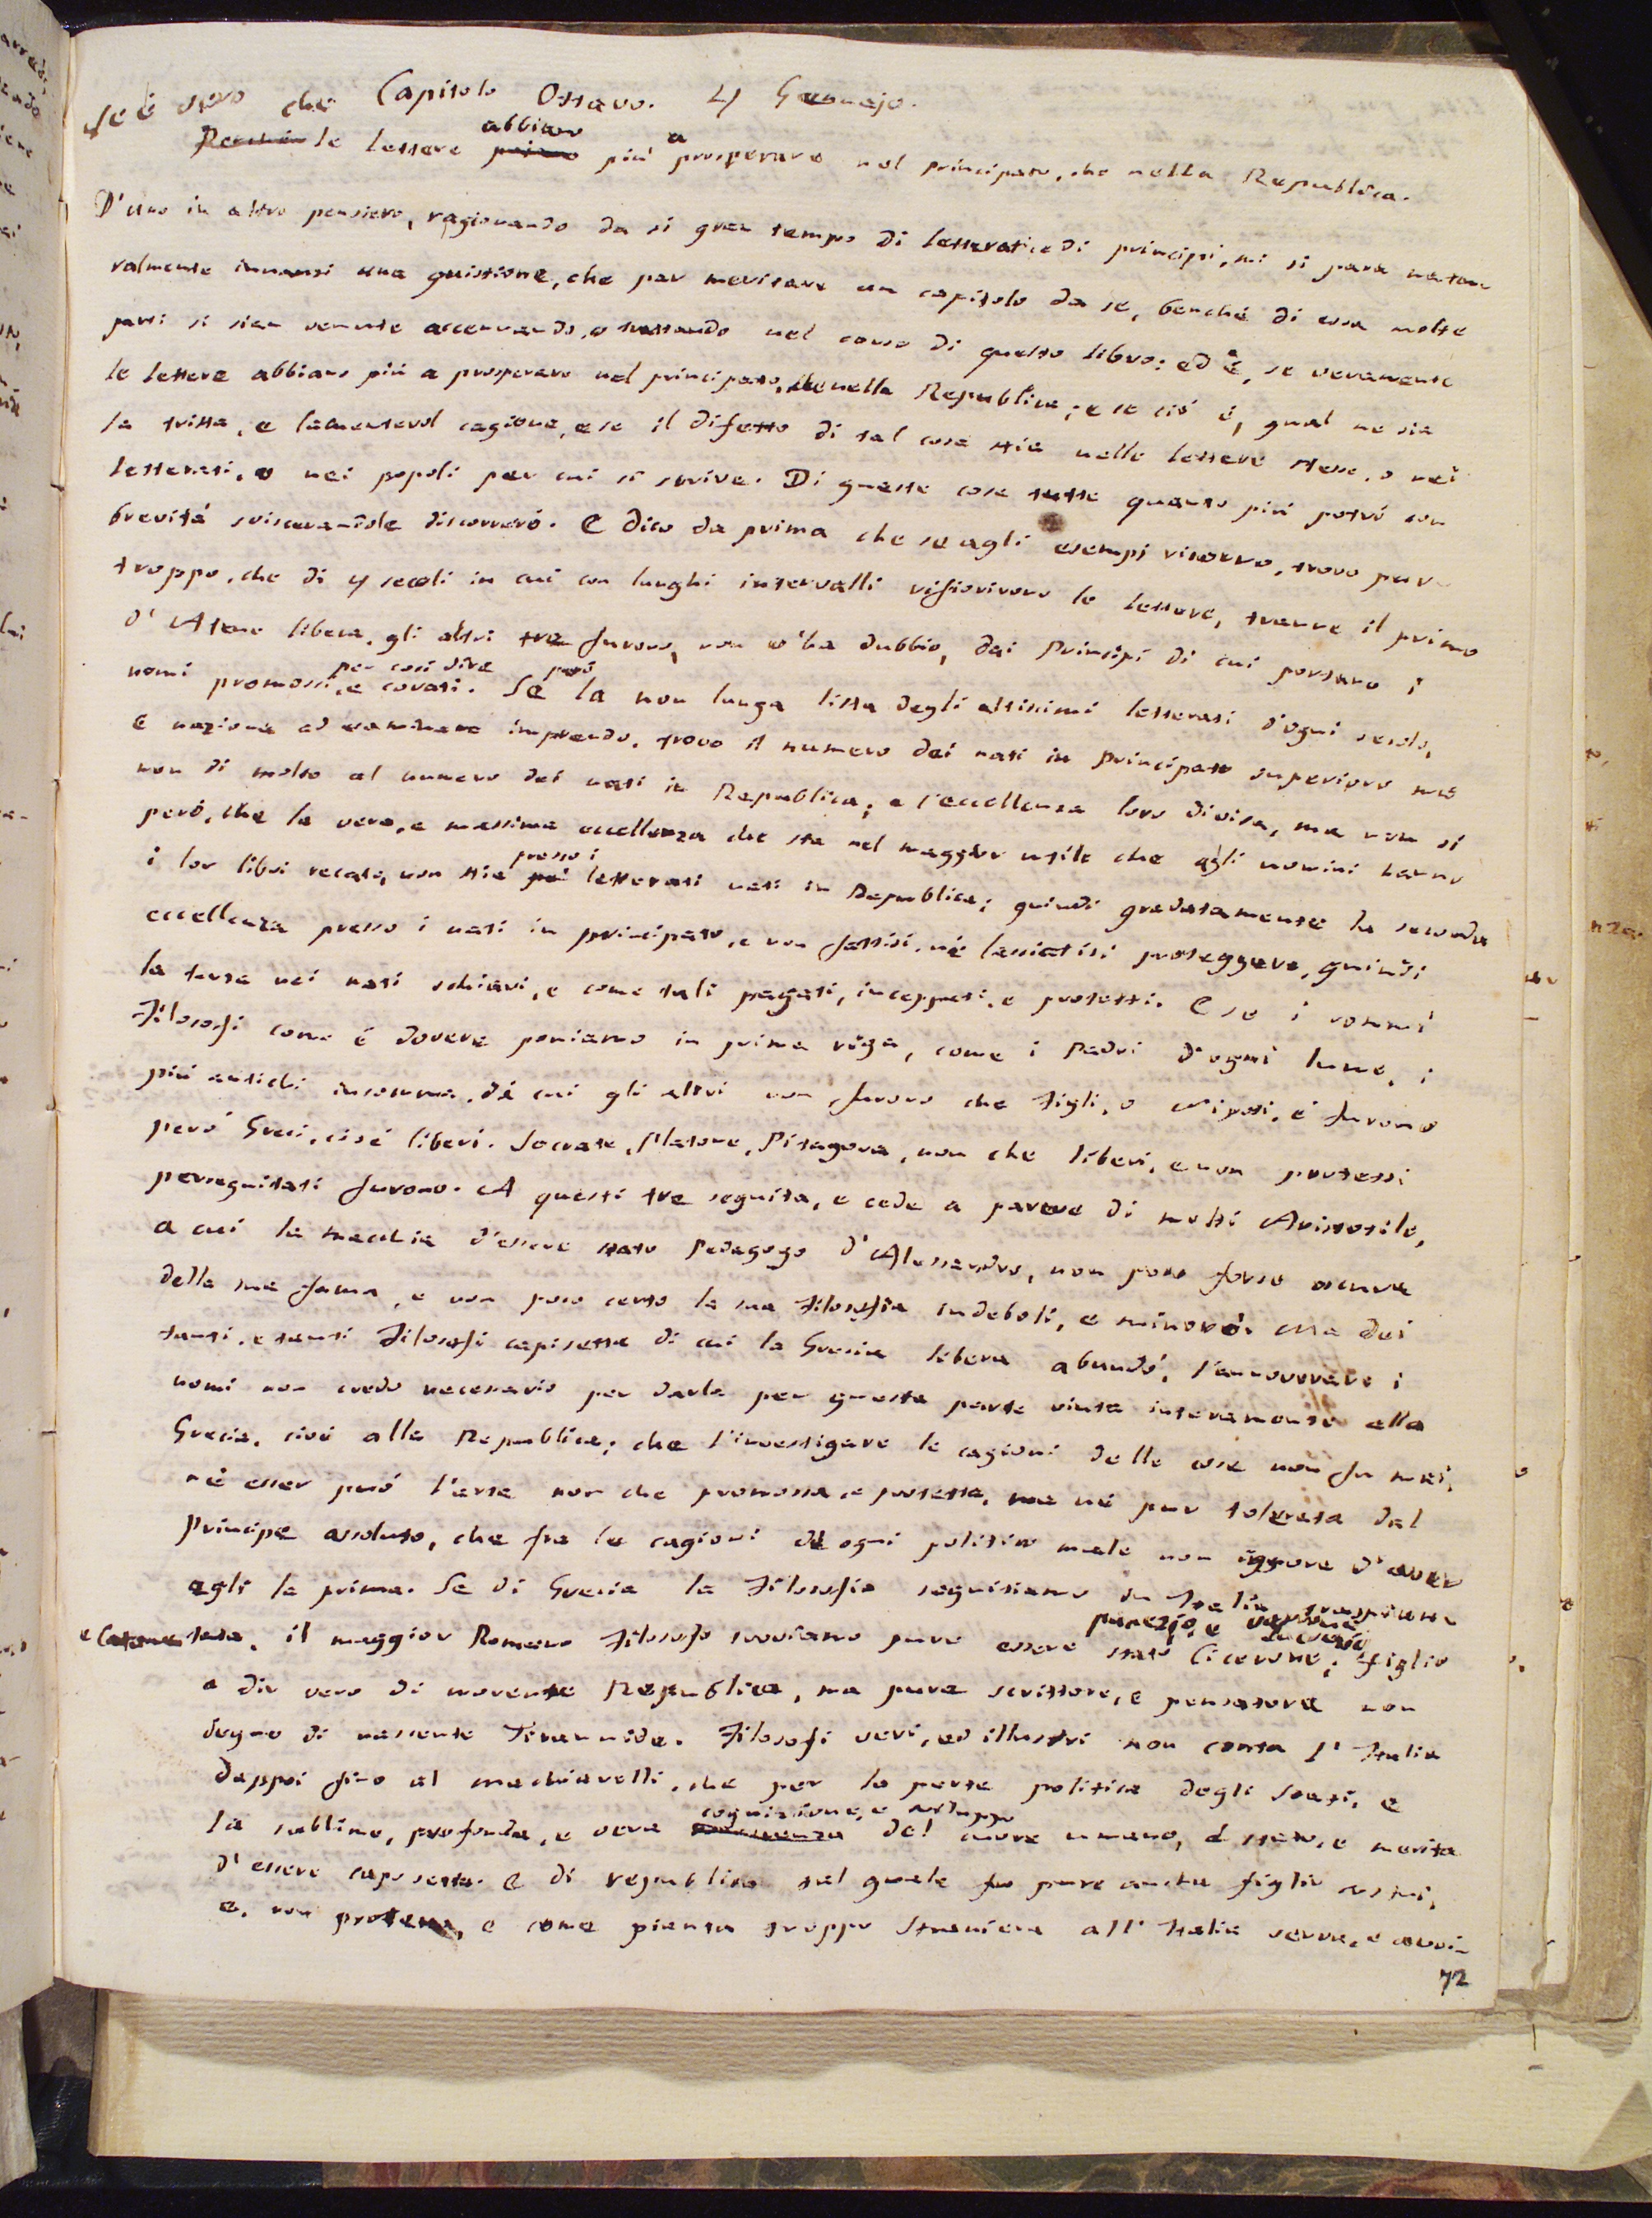 Capitolo Ottavo. 4 Gennajo.
Se è vero che
abbiano a
le lettere più prosperare nel principato, che nella Republica.
D'uno in altro pensiero, ragionando da si gran tempo di letterati e di principi, mi si para natu-
ralmente innanzi una quistione, che par meritare un capitolo da se, benché di essa molte
parti si sian venute accennando, o trattando nel corso di questo libro: ed è, se veramente
le lettere abbiano più a prosperare nel principato, che nella Republica; e se ciò è, qual ne sia
la trista, e lamentevol cagione, e se il difetto di tal cosa stia nelle lettere stesse, o nei
letterati, o nei popoli per cui si scrive. Di queste cose tutte quanto più potrò con
brevità sviscerandole discorrerò. E dico da prima che se agli esempj ricorro, trovo pur
troppo, che di 4 secoli in cui con lunghi intervalli rifiorirono le lettere, tranne il primo
d'Atene libera, gli altri tre furono, non v'ha dubbio, dai Principi di cui portano i
per così dire però
nomi promossi, e covati. Se la non lunga lista degli altissimi letterati d'ogni secolo,
e nazione ad esaminare imprendo, trovo il numero dei nati in Principato superiore ma
non di molto al numero dei nati in Republica; e l'eccellenza loro divisa, ma non si
però, che la vera, e massima eccellenza che sta nel maggior utile che agli uomini hanno
presso i
i lor libri recato, non stia letterati nati in Republica; quindi gradatamente la seconda
eccellenza presso i nati in principato, e non fattisi, né lasciatisi proteggere, quindi
la terza nei nati schiavi, e come tali pagati, inceppati, e protetti. E se i sommi
Filosofi come è dovere poniamo in prima riga, come i Padri d'ogni lume, i
più antichi insomma, di cui gli altri non furono che figli, o nipoti, e' furono
però Greci, cioè liberi. Socrate, Platone, Pitagora, non che liberi, e non protessi
perseguitati furono. A questi tre seguita, e cede a parere di molti Aristotile,
a cui la macchia d'essere stato Pedagogo d'Alessandro, non poco forse oscura
della sua fama, e non poco certo la sua Filosofia indebolì, e minorò. Ma dei
tanti, e tanti Filosofi capisetta di cui la Grecia libera abundò, l'annoverare i
nomi non credo necessario per darla per questa parte vinta interamente alla
Grecia, cioè alla Republica; che l'investigare le cagioni delle cose non fu mai,
né esser può l'arte non che promossa e protetta, ma né pur tollerata dal
Principe assoluto, che fra le cagioni di ogni politico male non ignora d'esser
egli la prima. Se di Grecia la Filosofia seguitiamo in Italia traspian-
panezio, e varrone
Lucrezio,
e Catone tata, il maggior Romano Filosofo troviamo pure essere stato Cicerone; figlio
a dir vero di morente Republica, ma pure scrittore, e pensatore non
degno di nascente Tirannide. Filosofi veri, ed illustri non conta l'Italia
dappoi fino al Machiavelli, che per la parte politica degli stati, e
cognizione, e sviluppo
la sublime, profonda, e vera del cuore umano, è stato, e merita
d'essere caposetta. E di republica nel quale fu pure anche figlio costui,
e, non protetto, e come pianta troppo straniera all'Italia serva, e avvi-
72